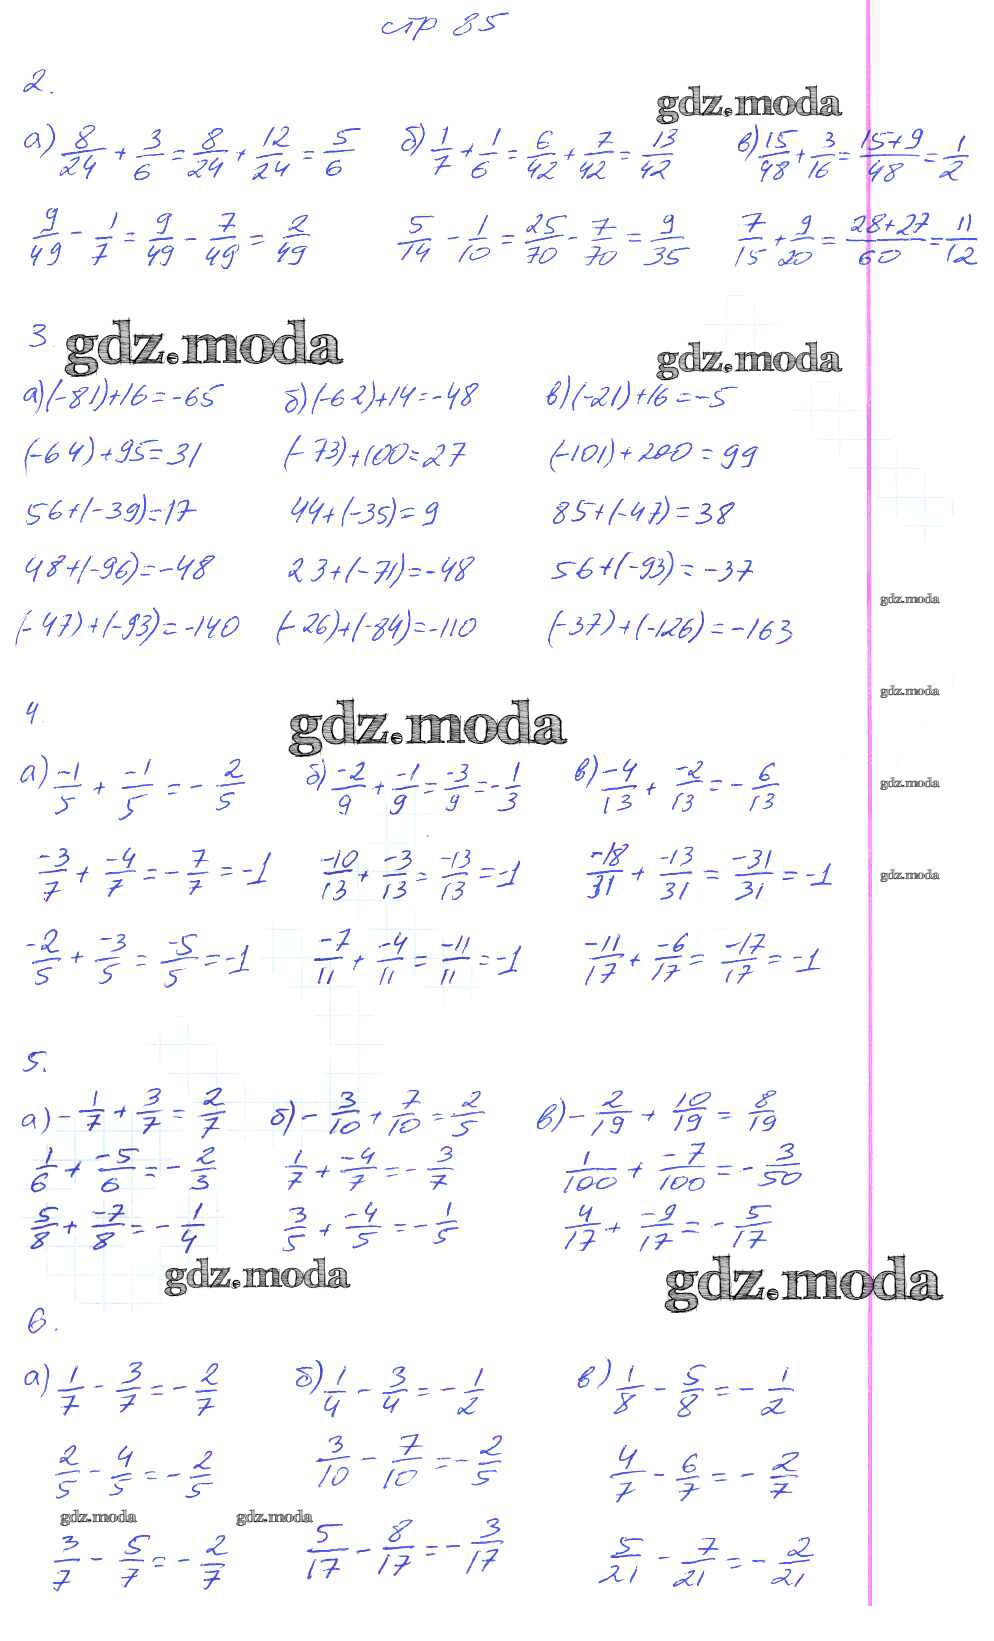 стр 85
2.
gdz.moda
а) 8/24 + 3/6 = 8/24 + 12/24 = 5/6 б) 1/7 + 1/6 = 6/42 + 7/42 = 13/42 в) 15/48 + 3/16 = (15+9)/48 = 1/2
9/49 - 1/7 = 9/49 - 7/49 = 2/49 5/14 - 1/10 = 25/70 - 7/70 = 9/35 7/15 + 9/20 = (28+27)/60 = 11/12
3. gdz.moda gdz.moda
а) (-81)+16=-65 б) (-62)+14=-48 в) (-21)+16=-5
(-64)+95=31 (-73)+100=27 (-101)+200=99
56+(-39)=17 44+(-35)=9 85+(-47)=38
48+(-96)=-48 23+(-71)=-48 56+(-93)=-37
gdz.moda
(-47)+(-93)=-140 (-26)+(-84)=-110 (-37)+(-126)=-163
gdz.moda
4. gdz.moda
а) -1/5 + -1/5 = -2/5 б) -2/9 + -1/9 = -3/9 = -1/3 в) -4/13 + -2/13 = -6/13
gdz.moda
-3/7 + -4/7 = -7/7 = -1 -10/13 + -3/13 = -13/13 = -1 -18/31 + -13/31 = -31/31 = -1
gdz.moda
-2/5 + -3/5 = -5/5 = -1 -7/11 + -4/11 = -11/11 = -1 -11/17 + -6/17 = -17/17 = -1
5.
а) -1/7 + 3/7 = 2/7 б) -3/10 + 7/10 = 2/5 в) -2/19 + 10/19 = 8/19
1/6 + -5/6 = -2/3 1/7 + -4/7 = -3/7 1/100 + -7/100 = -3/50
5/8 + -7/8 = -1/4 3/5 + -4/5 = -1/5 4/17 + -9/17 = -5/17
gdz.moda gdz.moda
6.
а) 1/7 - 3/7 = -2/7 б) 1/4 - 3/4 = -1/2 в) 1/8 - 5/8 = -1/2
2/5 - 4/5 = -2/5 3/10 - 7/10 = -2/5 4/7 - 6/7 = -2/7
gdz.moda gdz.moda
3/7 - 5/7 = -2/7 5/17 - 8/17 = -3/17 5/21 - 7/21 = -2/21